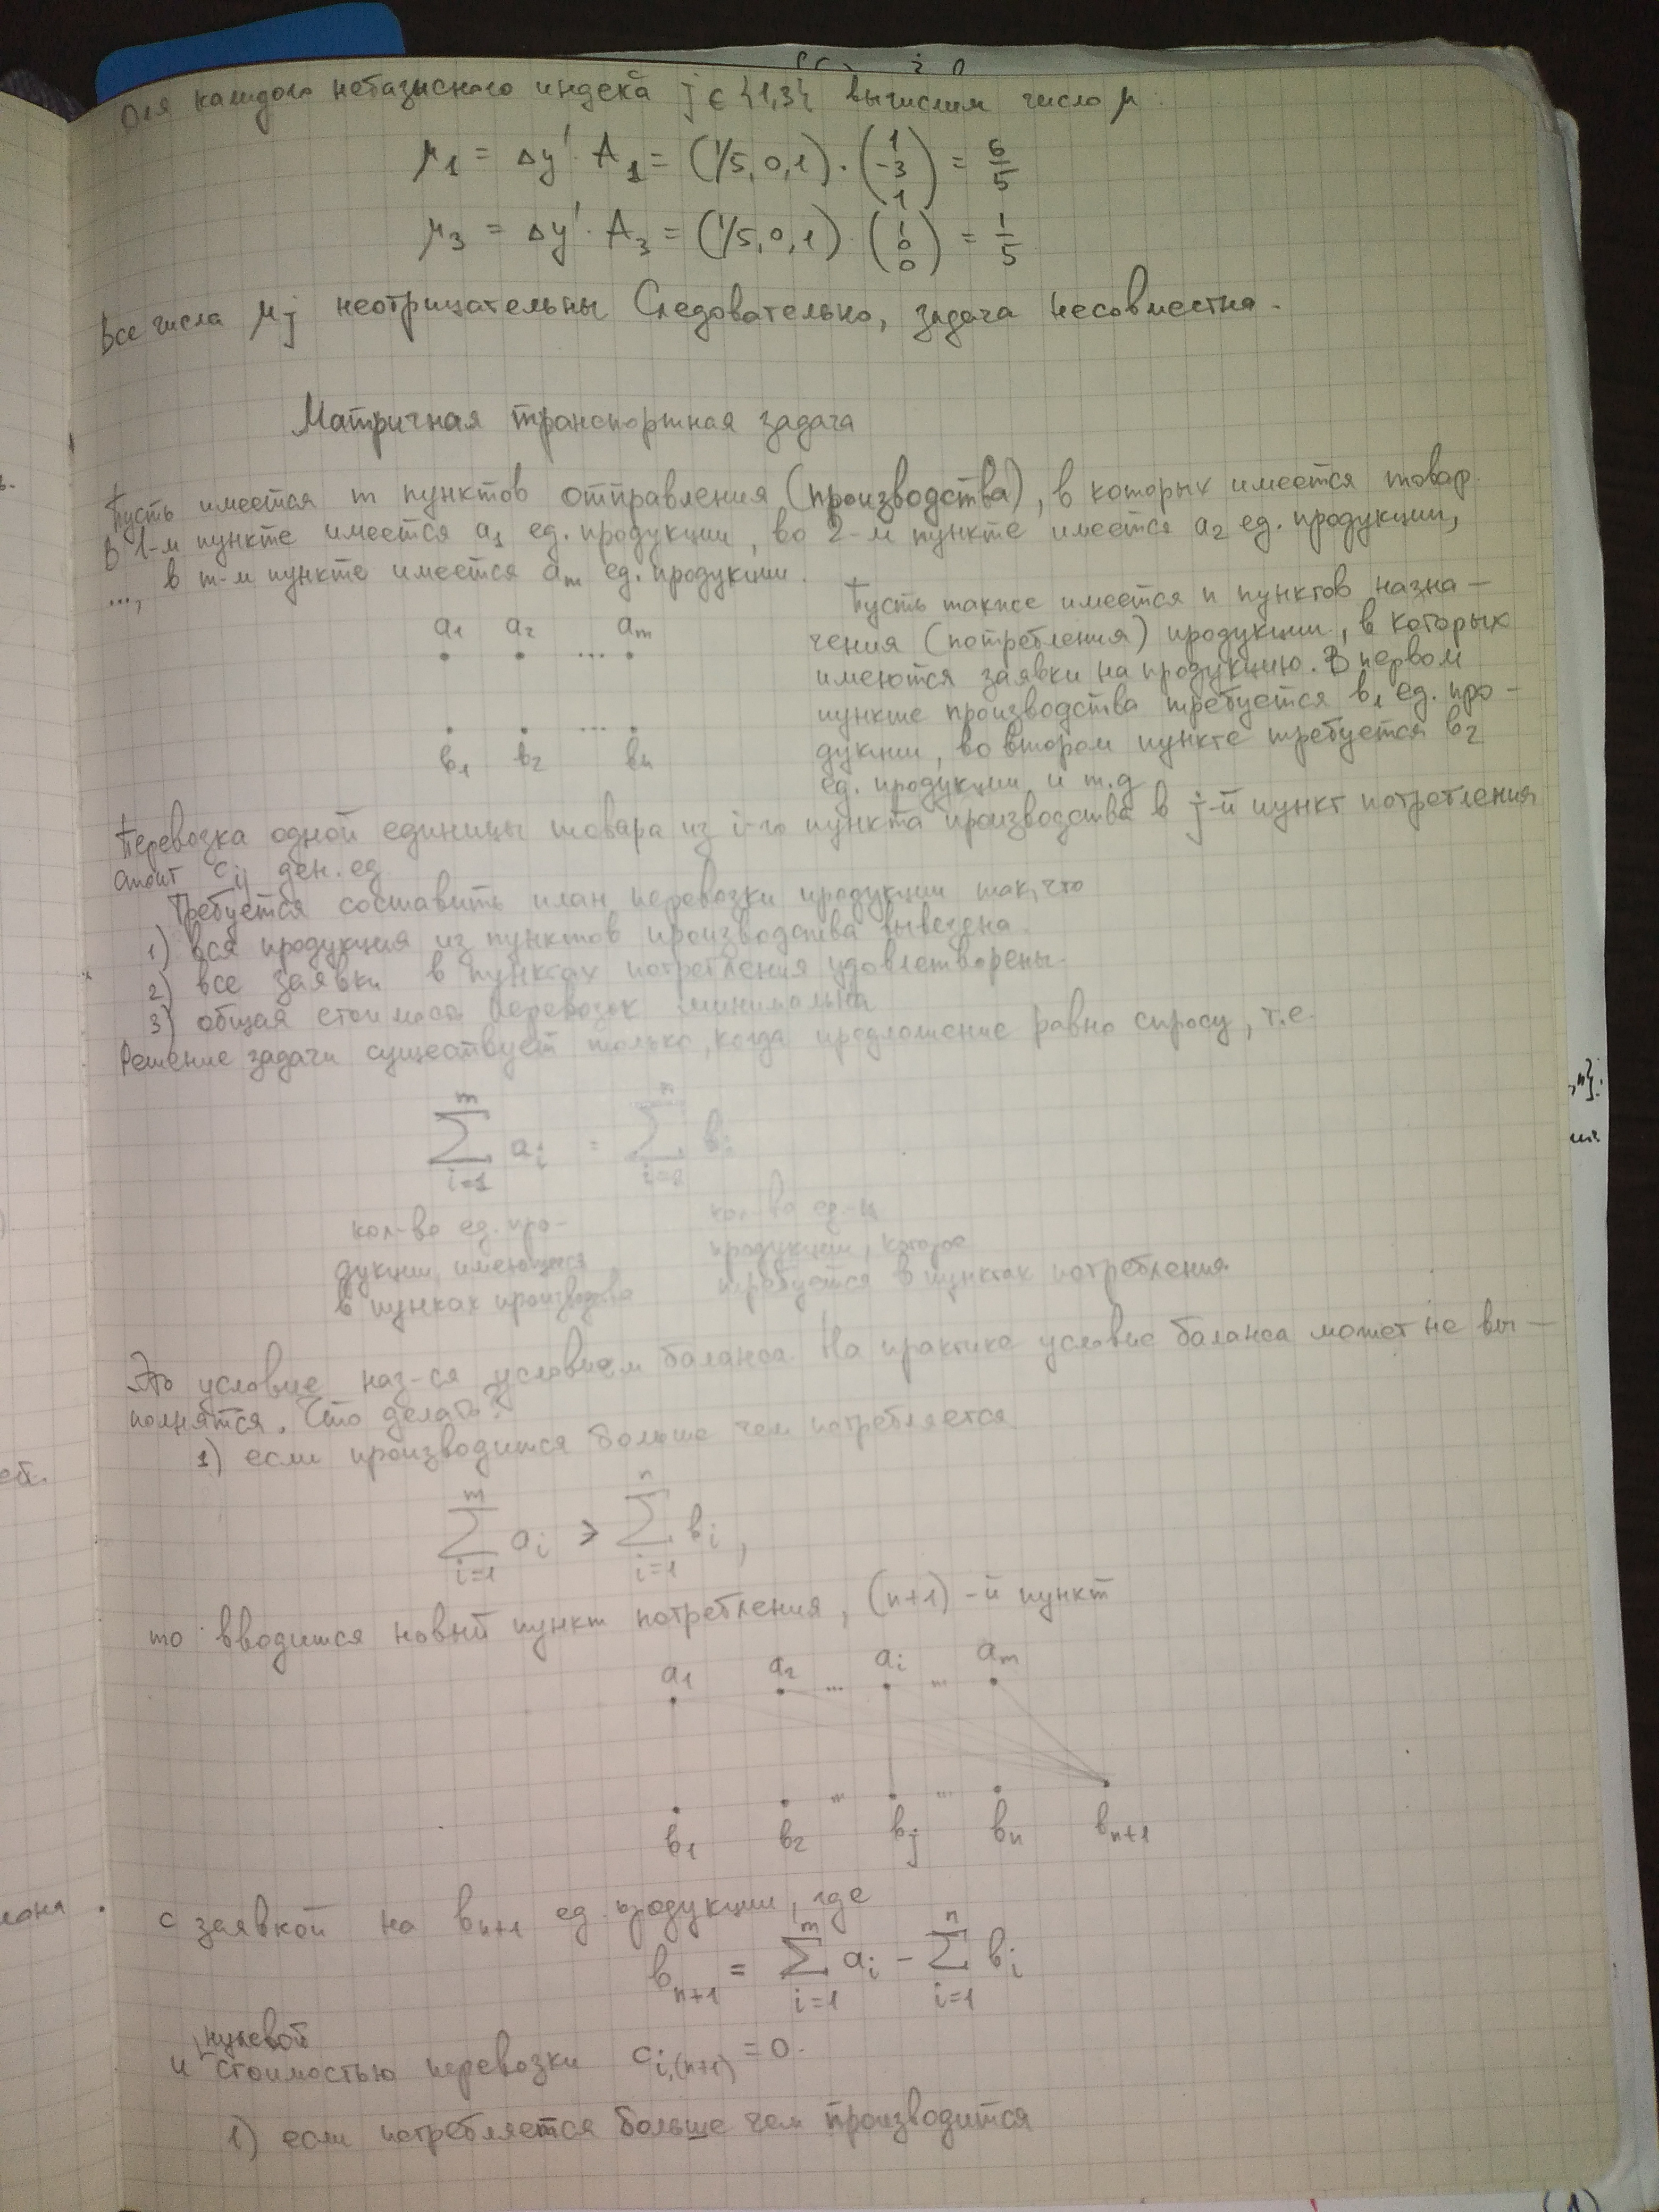 Для каждого небазисного индека j ∈ {1,3} вычислим число μ:
μ₁ = Δy'·A₁ = (1/5, 0, 1)·(1 -3 1) = 6/5
μ₃ = Δy'·A₃ = (1/5, 0, 1)·(1 0 0) = 1/5
Все числа μj неотрицательны Следовательно, задача несовместна.
Матричная транспортная задача
Пусть имеется m пунктов отправления (производства), в которых имеется товар.
В 1-м пункте имеется a₁ ед. продукции, во 2-м пункте имеется a₂ ед. продукции,
..., в m-м пункте имеется aₘ ед. продукции.
a₁ a₂ ... aₘ
b₁ b₂ ... bₙ
Пусть также имеется n пунктов назна-
чения (потребления) продукции, в которых
имеются заявки на продукцию. В первом
пункте производства требуется b₁ ед. про-
дукции, во втором пункте требуется b₂
ед. продукции и т.д
Перевозка одной единицы товара из i-го пункта производства в j-й пункт потребления
стоит cij ден. ед
Требуется составить план перевозки продукции так, что
1) вся продукция из пунктов производства вывезена.
2) все заявки в пунктах потребления удовлетворены.
3) общая стоимость перевозок минимальна
Решение задачи существует только, когда предложение равно спросу, т.е.
∑_{i=1}^{m} aᵢ = ∑_{i=1}^{n} bᵢ
кол-во ед. про-
дукции, имеющееся
в пунках производства
кол-во ед-ц
продукции, которое
требуется в пунктах потребления.
Это условие наз-ся условием баланса. На практике условие баланса может не вы-
полнятся. Что делать?
1) если производится больше чем потребляется
∑_{i=1}^{m} aᵢ > ∑_{i=1}^{n} bᵢ,
то вводится новый пункт потребления, (n+1)-й пункт
a₁ a₂ ... aᵢ ... aₘ
b₁ b₂ ... bj ... bₙ bₙ₊₁
с заявкой на bₙ₊₁ ед. продукции, где
bₙ₊₁ = ∑_{i=1}^{m} aᵢ - ∑_{i=1}^{n} bᵢ
и нулевой стоимостью перевозки c_{i,(n+1)} = 0.
1) если потребляется больше чем производится